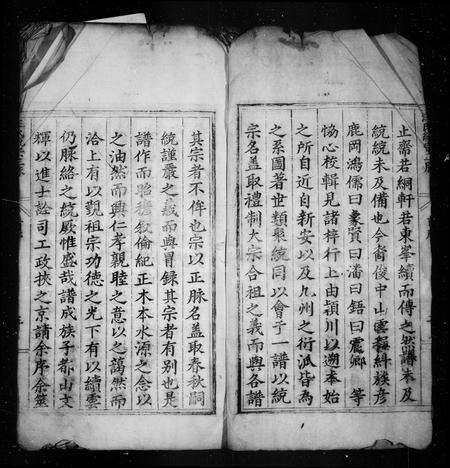 止齋若絅軒若東峯續而傳之然譜未及
統統未及備也今裔俊中山雲程糾族彥
鹿岡鴻儒曰象賢曰潘曰鋙曰震卿等
恊心校輯見諸梓行上由潁川以遡本始
之所自近自新安以及九州之衍派皆為
之系圖著世類聚統同以會于一譜以統
宗名盖取禮制大宗合祖之義而與各譜
其宗者不侔也宗以正脉名盖取春秋嗣
統謹嚴之義而與冒録其宗者有别也是
譜作而昭穆敘倫紀正木本水源之念以
之油然而興仁孝親睦之意以之藹然而
洽上有以覲祖宗功德之光下有以續雲
仍脉絡之統厥惟盛哉譜成族子都山文
輝以進士訟司工政挾之京請余序余筮